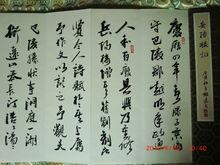 岳陽樓記
慶曆四年春滕子京謫
守巴陵郡越明年政通
人和百廢具興乃重修
岳陽樓增其舊制刻唐
賢今人詩賦於其上屬
予作文以記之予觀夫
巴陵勝狀在洞庭一湖
銜遠山吞長江浩浩湯